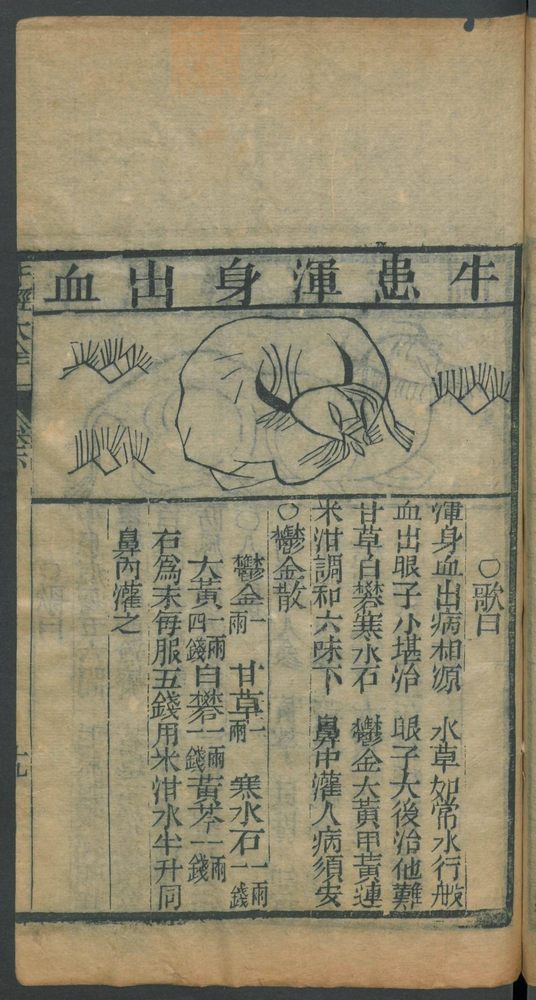 牛患渾身出血
○歌曰
渾身血出病相源　水草如常水行般
血出眼子小堪治　眼子大後治他難
甘草白礬寒水石　鬱金大黃甲黃連
米泔調和六味下　鼻中灌入病須安
○鬱金散
鬱金一兩　甘草一兩　寒水石一兩一錢
大黃一兩四錢　白礬一兩一錢　黃芩一兩一錢
右爲末每服五錢用米泔水半升同
鼻內灌之
牛經大全
卷下
十九